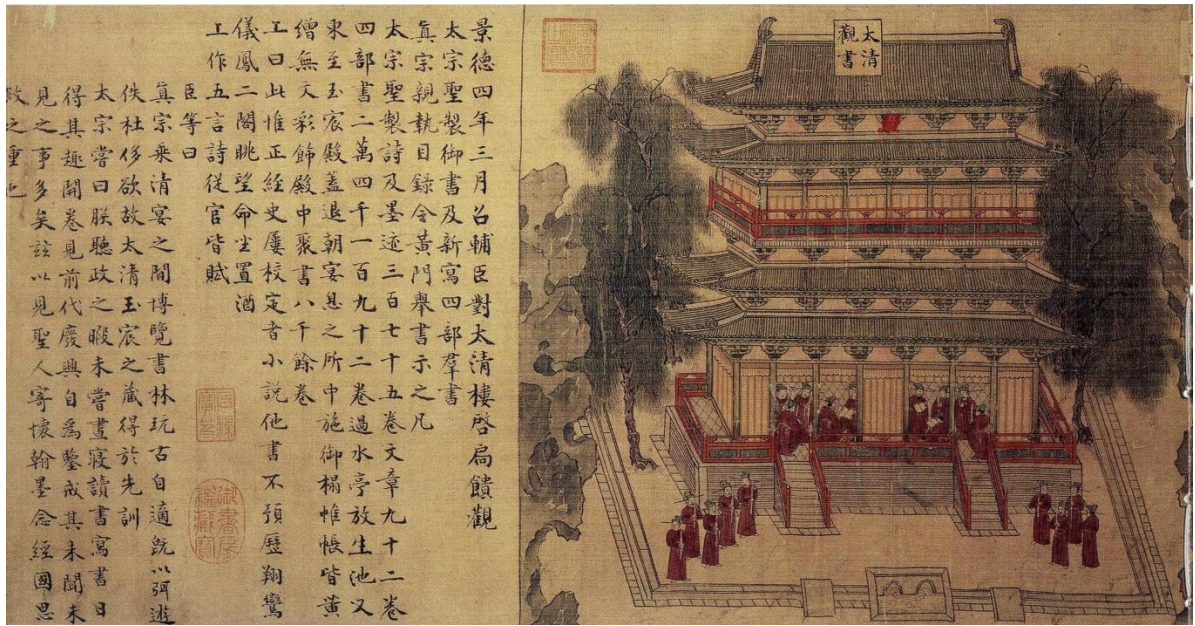 太清
觀書
景德四年三月召輔臣對太清樓啓扃饋觀
太宗聖製御書及新寫四部羣書
真宗親執目錄令黃門舉書示之凡
太宗聖製詩及墨迹三百七十五卷文章九十二卷
四部書二萬四千一百九十二卷過水亭放生池又
東至玉宸殿蓋退朝宴息之所中施御榻帷帳皆黃
繒無文彩飾殿中聚書八千餘卷
上曰此惟正經史屢校定者小說他書不預歷翔鸞
儀鳳二閣眺望命坐置酒
上作五言詩從官皆賦
臣等曰
真宗乘清宴之間博覽書林玩古自適既以弭遊
佚杜侈欲故太清玉宸之藏得於先訓
太宗嘗曰朕聽政之暇未嘗晝寢讀書寫書日
得其趣開卷見前代廢興自為鑒戒其未聞未
見之事多矣兹以見聖人寄懷翰墨念經國思
政之重也
石渠寶笈
御書房鑑藏寶